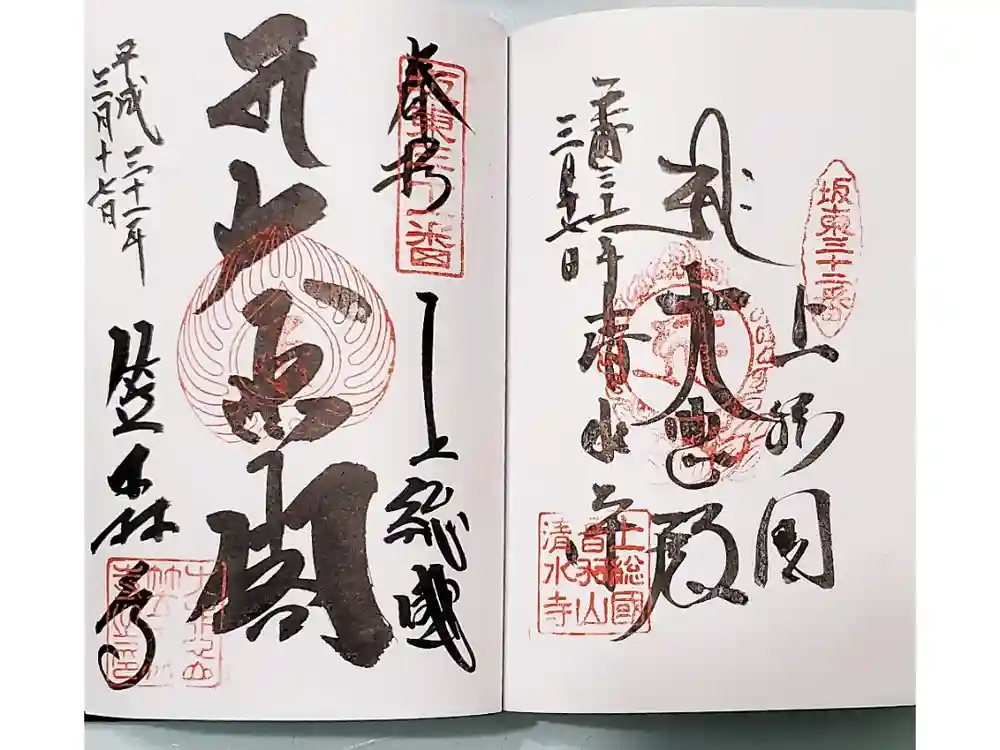 坂東三十二番
上総国
大悲殿
三月十七日
清水寺
上総國
音羽山
清水寺
坂東三十一番
奉拝
上総國
大悲閣
平成三十一年
三月十七日
笠森寺